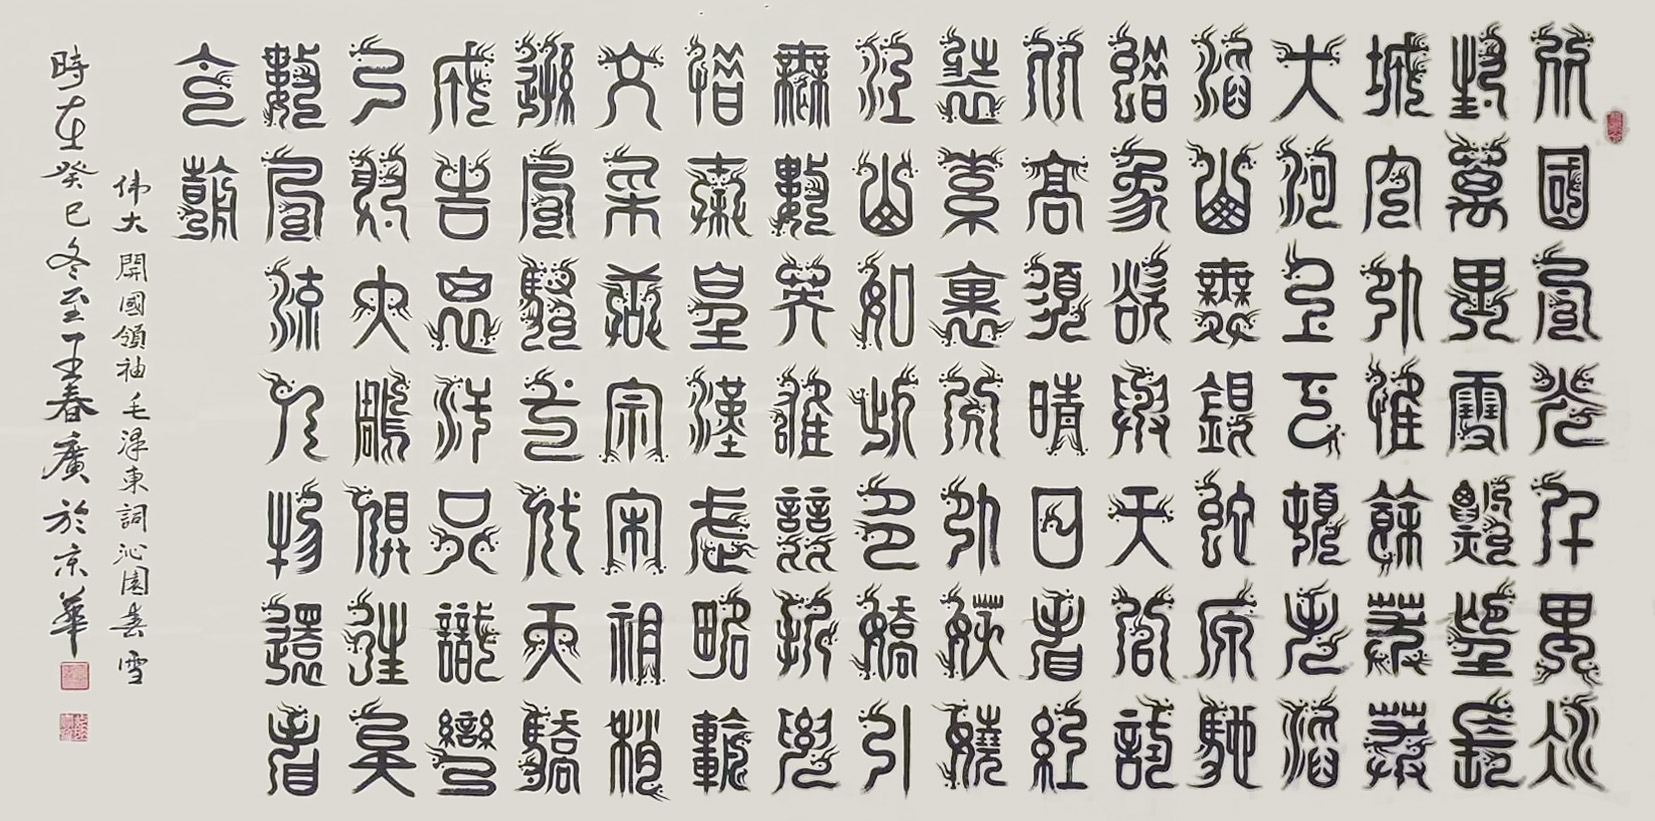 北國風光千里冰
封萬里雪飄望長
城內外惟餘莽莽
大河上下頓失滔
滔山舞銀蛇原馳
蠟象欲與天公試
比高須晴日看紅
裝素裹分外妖嬈
江山如此多嬌引
無數英雄競折腰
惜秦皇漢武略輸
文采唐宗宋祖稍
遜風騷一代天驕
成吉思汗只識彎
弓射大雕俱往矣
數風流人物還看
今朝
偉大開國領袖毛澤東詞沁園春雪
時在癸巳冬至王春廣於京華